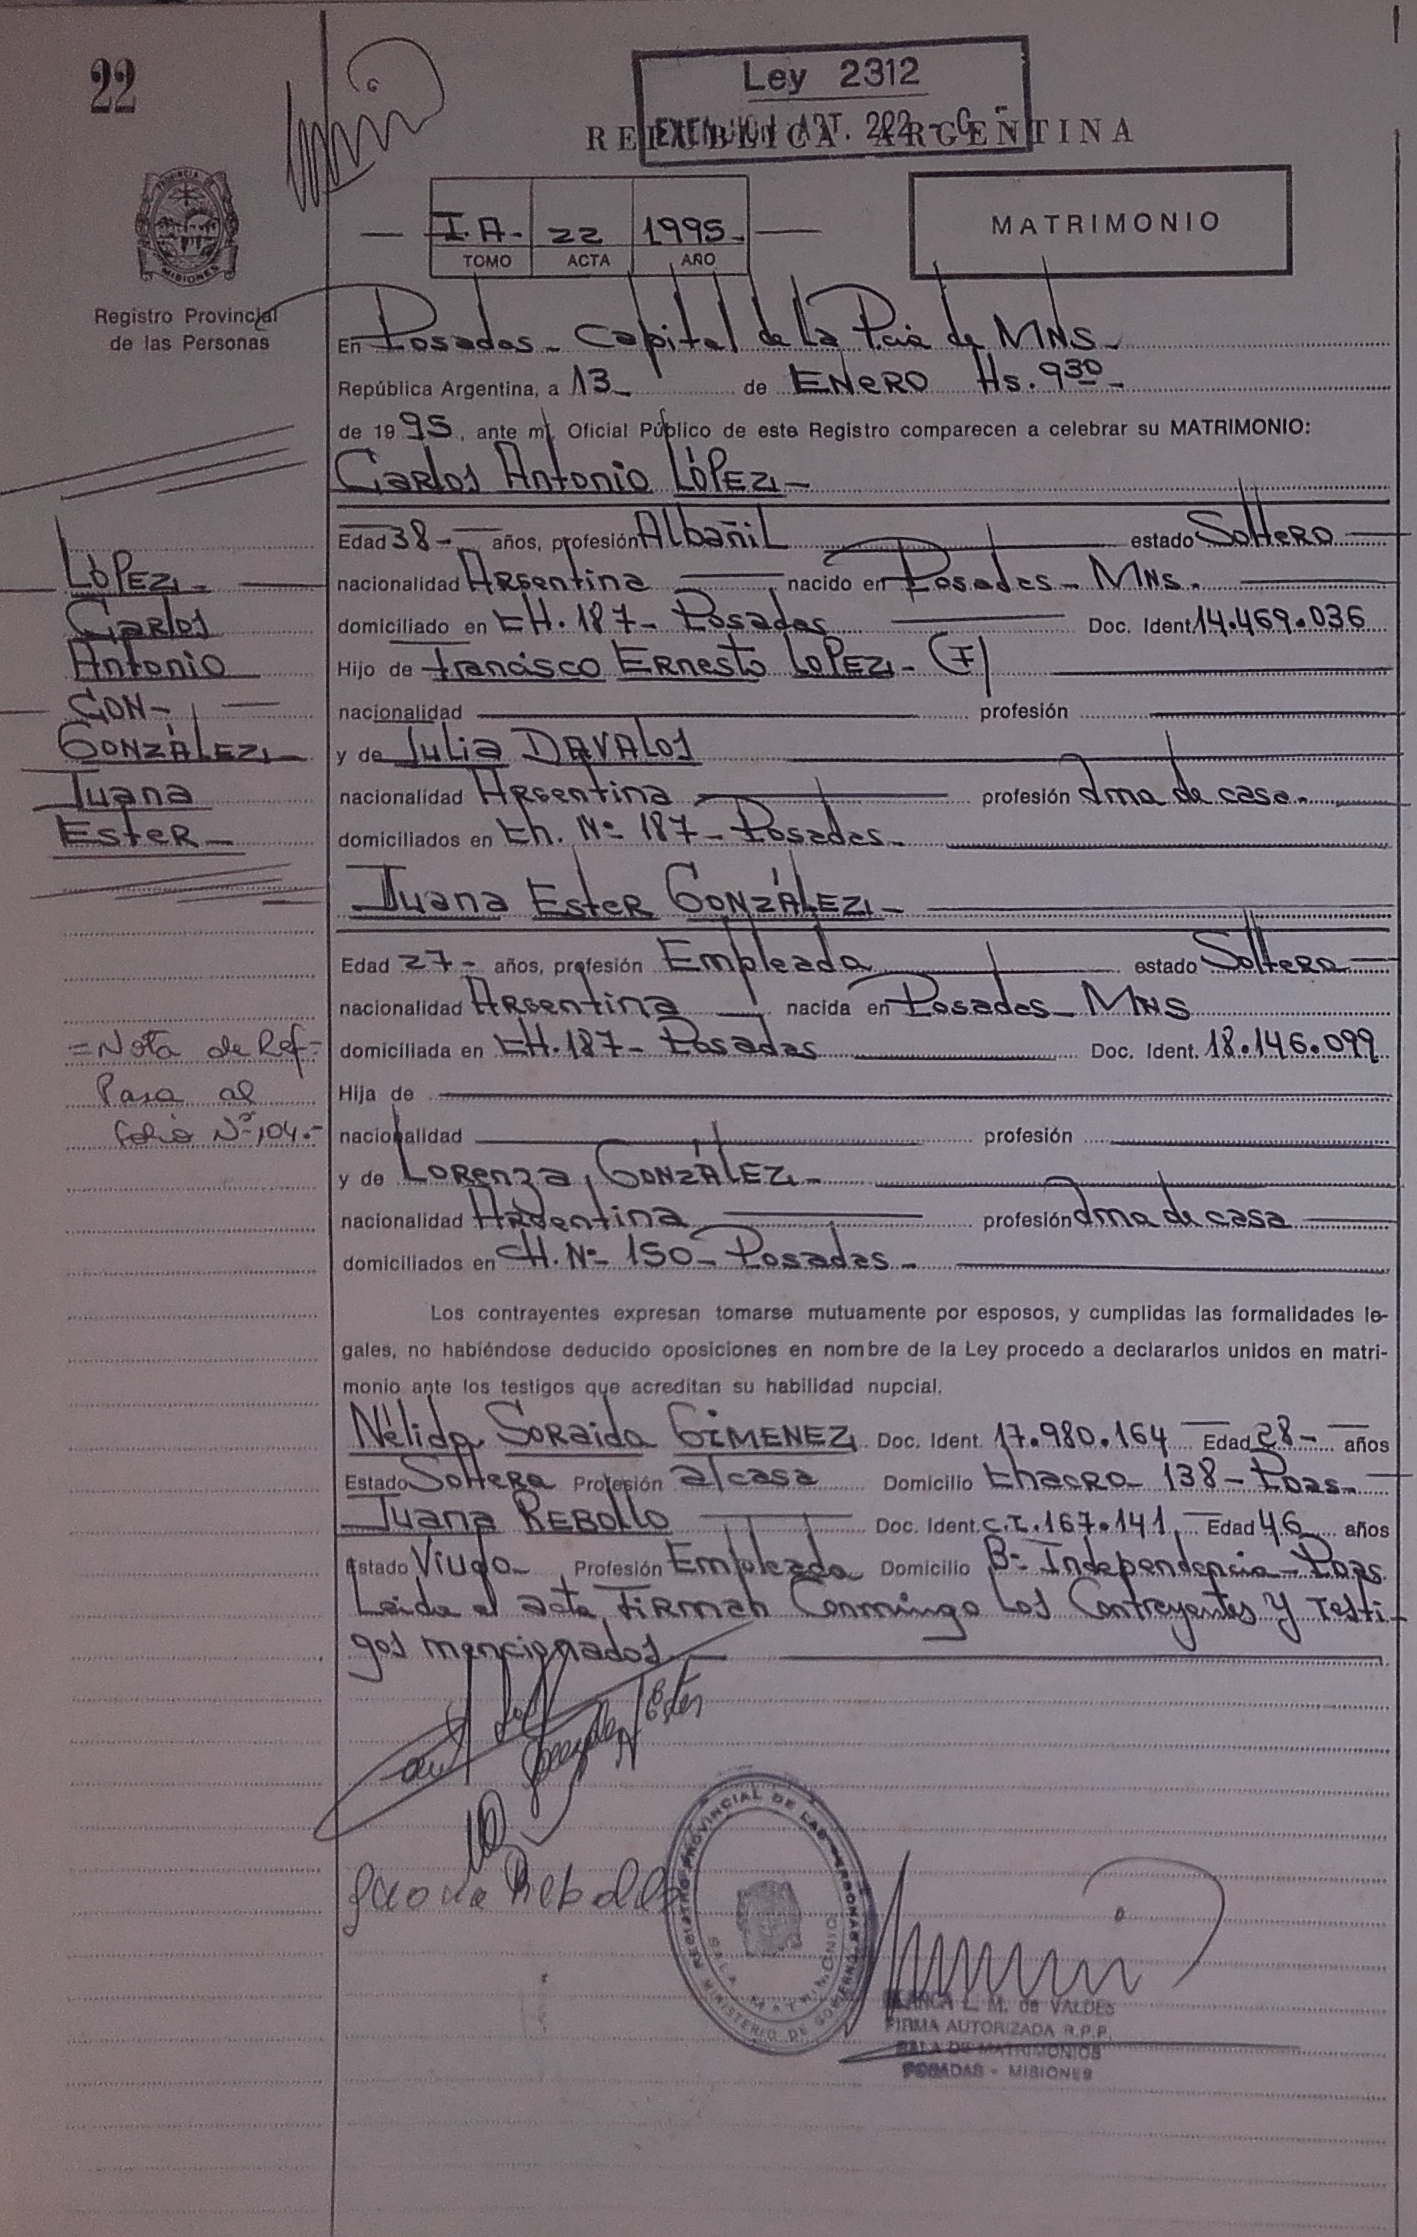 22
Ley 2312
REPUBLICA ARGENTINA
I.A. 22 1995.
TOMO ACTA AÑO
MATRIMONIO
PROVINCIA DE MISIONES
Registro Provincial
de las Personas
En Posadas - Capital de La Pcia de MNS -
República Argentina, a 13 - de ENERO Hs. 9 30 -
de 19 95, ante mí, Oficial Público de este Registro comparecen a celebrar su MATRIMONIO:
Carlos Antonio LÓPEZ -
Edad 38 - años, profesión Albañil estado Soltero
nacionalidad Argentina nacido en Posadas - MNS.
domiciliado en CH. 187 - Posadas Doc. Ident. 14.469.036
Hijo de Francisco Ernesto LOPEZ - (F)
nacionalidad profesión
y de Julia DAVALOS
nacionalidad Argentina profesión Ama de casa.
domiciliados en Ch. Nº 187 - Posadas -
LÓPEZ -
Carlos
Antonio
CON -
GONZÁLEZ -
Juana
Ester -
Juana Ester GONZÁLEZ -
Edad 27 - años, profesión Empleada estado Soltera
nacionalidad Argentina nacida en Posadas - MNS
domiciliada en CH. 187 - Posadas Doc. Ident. 18.146.099
Hija de
nacionalidad profesión
y de Lorenza GONZÁLEZ -
nacionalidad Argentina profesión Ama de casa
domiciliados en CH. Nº 150 - Posadas -
= Nota de Ref -
Pasa al
folio Nº 104. -
Los contrayentes expresan tomarse mutuamente por esposos, y cumplidas las formalidades le-
gales, no habiéndose deducido oposiciones en nombre de la Ley procedo a declararlos unidos en matri-
monio ante los testigos que acreditan su habilidad nupcial.
Nélida Soraida GIMENEZ Doc. Ident. 17.980.164 Edad 28 - años
Estado Soltera Profesión a/casa Domicilio Chacra 138 - Pdas.
Juana REBOLLO Doc. Ident. C.I. 167.141 Edad 46 años
Estado Viuda Profesión Empleada Domicilio Bº Independencia - Pdas.
Leída el acta, firman Conmingo Los Contrayentes y Testi-
gos mencionados
González J Ester
Juana Rebollo
REGISTRO PROVINCIAL DE LAS PERSONAS
SALA MATRIMONIO
MINISTERIO DE GOBIERNO
BLANCA L. M. de VALDES
FIRMA AUTORIZADA R.P.P.
SALA DE MATRIMONIOS
POSADAS - MISIONES